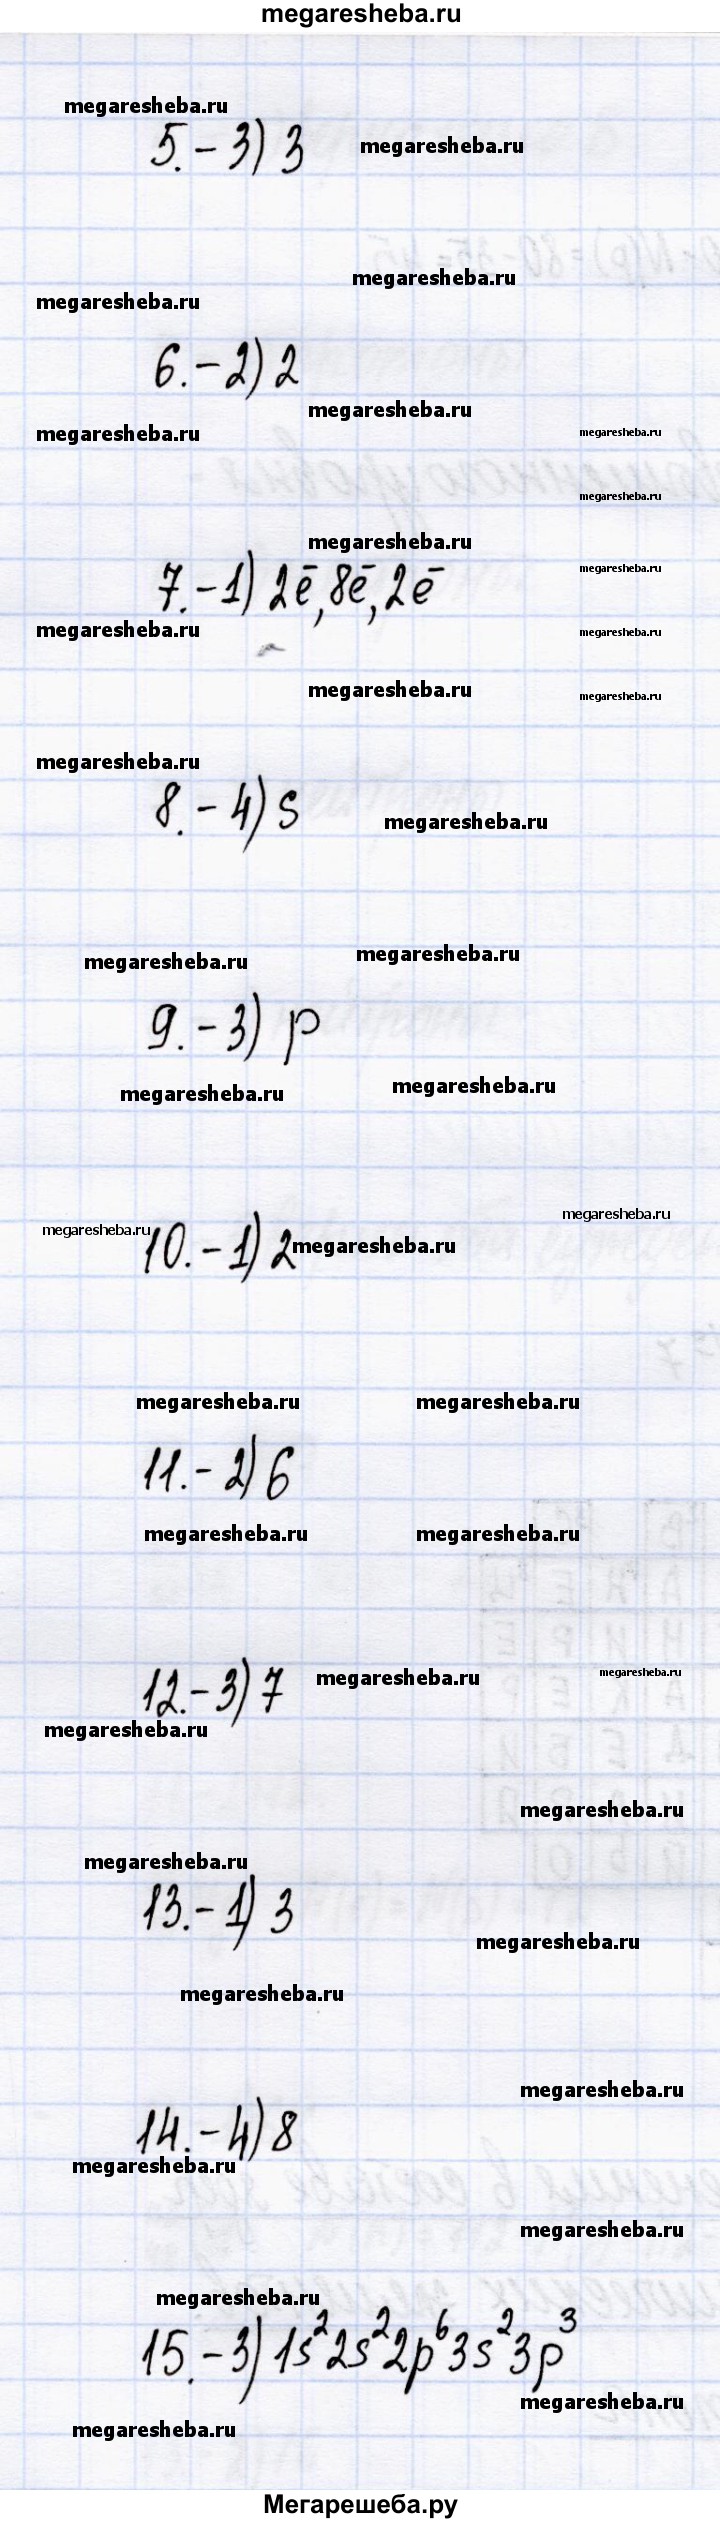 megaresheba.ru
megaresheba.ru
5. - 3) 3
megaresheba.ru
megaresheba.ru
megaresheba.ru
6. - 2) 2
megaresheba.ru
megaresheba.ru
megaresheba.ru
megaresheba.ru
megaresheba.ru
megaresheba.ru
7. - 1) 2ē, 8ē, 2ē
megaresheba.ru
megaresheba.ru
megaresheba.ru
megaresheba.ru
megaresheba.ru
8. - 4) s
megaresheba.ru
megaresheba.ru
megaresheba.ru
9. - 3) p
megaresheba.ru
megaresheba.ru
megaresheba.ru
megaresheba.ru
10. - 1) 2
megaresheba.ru
megaresheba.ru
megaresheba.ru
11. - 2) 6
megaresheba.ru
megaresheba.ru
12. - 3) 7
megaresheba.ru
megaresheba.ru
megaresheba.ru
megaresheba.ru
megaresheba.ru
13. - 1) 3
megaresheba.ru
megaresheba.ru
megaresheba.ru
14. - 4) 8
megaresheba.ru
megaresheba.ru
megaresheba.ru
15. - 3) 1s²2s²2p⁶3s²3p³
megaresheba.ru
megaresheba.ru
Мегарешеба.ру